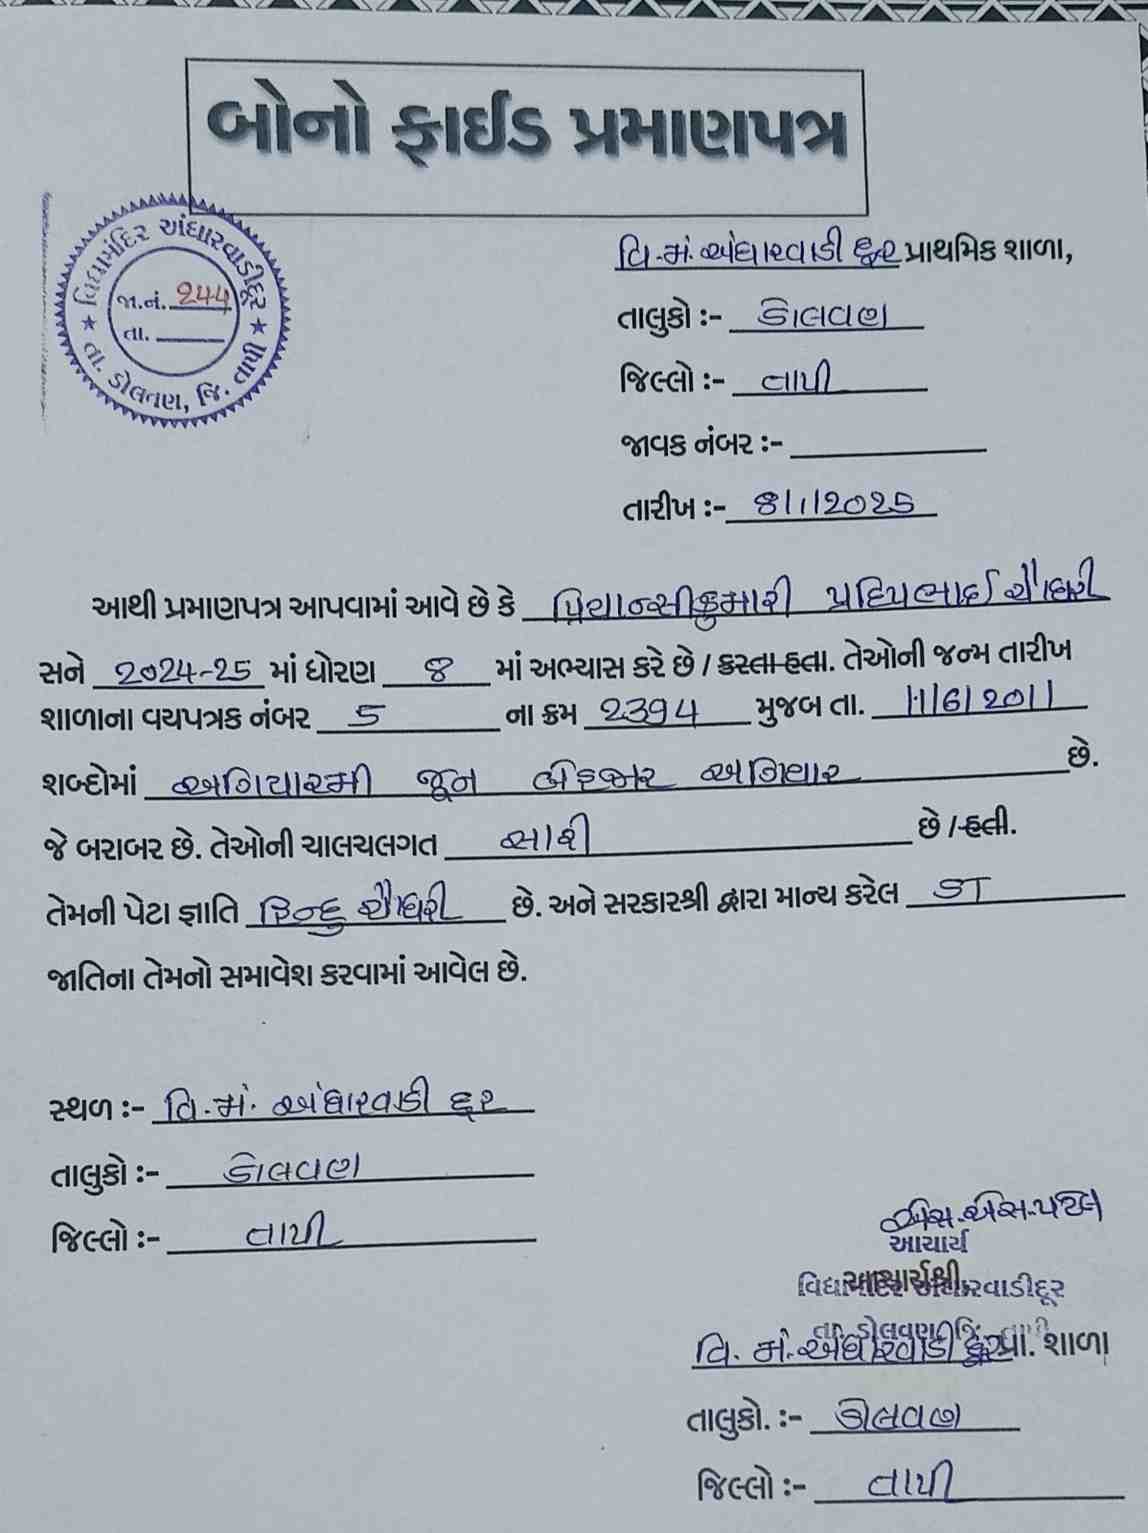 બોનો ફાઈડ પ્રમાણપત્ર
વિદ્યામંદિર અંધારવાડીદૂર
જા.નં. ૨૪૫
તા.
★ તા. ડોલવણ, જિ. તાપી ★
વિ.મં.અંધારવાડી દૂર પ્રાથમિક શાળા,
તાલુકો :- ડોલવણ
જિલ્લો :- તાપી
જાવક નંબર :-
તારીખ :- 8/1/2025
આથી પ્રમાણપત્ર આપવામાં આવે છે કે પ્રિયાન્સીકુમારી પ્રદિપભાઈ ચૌધરી
સને 2024-25 માં ધોરણ 8 માં અભ્યાસ કરે છે / કરતા હતા. તેઓની જન્મ તારીખ
શાળાના વયપત્રક નંબર 5 ના ક્રમ 2394 મુજબ તા. 11/6/2011
શબ્દોમાં અગિયારમી જૂન બેહજાર અગિયાર છે.
જે બરાબર છે. તેઓની ચાલચલગત સારી છે / હતી.
તેમની પેટા જ્ઞાતિ હિન્દુ ચૌધરી છે. અને સરકારશ્રી દ્વારા માન્ય કરેલ ST
જાતિના તેમનો સમાવેશ કરવામાં આવેલ છે.
સ્થળ :- વિ.મં. અંધારવાડી દૂર
તાલુકો :- ડોલવણ
જિલ્લો :- તાપી
એસ.એસ.પટેલ
આચાર્ય
આચાર્યશ્રી,
વિદ્યામંદિર અંધારવાડીદૂર
તા. ડોલવણ જિ. તાપી
વિ. મં. અંધારવાડી દૂર પ્રા. શાળા
તાલુકો. :- ડોલવણ
જિલ્લો :- તાપી